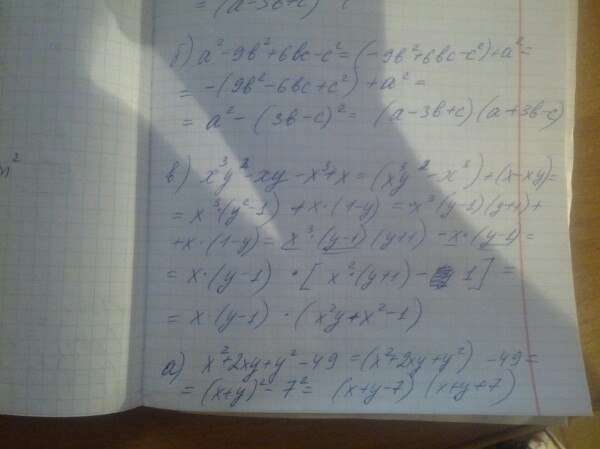 = (a-3в+c) (
б) a²-9в²+6вc-c² = (-9в²+6вc-c²)+a² =
= -(9в²-6вc+c²) +a² =
= a² - (3в-c)² = (a-3в+c) (a+3в-c)
в) x³y² - xy - x³ + x = (x³y² - x³) + (x-xy) =
= x³·(y²-1) + x·(1-y) = x³(y-1)(y+1)+
+x·(1-y) = x³·(y-1)(y+1) - x·(y-1) =
= x·(y-1) · [x²·(y+1) - 1] =
= x·(y-1) · (x²y+x²-1)
а) x²+2xy+y²-49 = (x²+2xy+y²) -49 =
= (x+y)² - 7² = (x+y-7) (x+y+7)